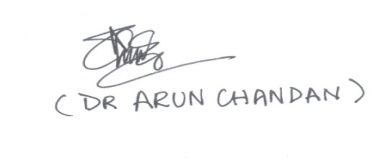 (DR ARUN CHANDAN)